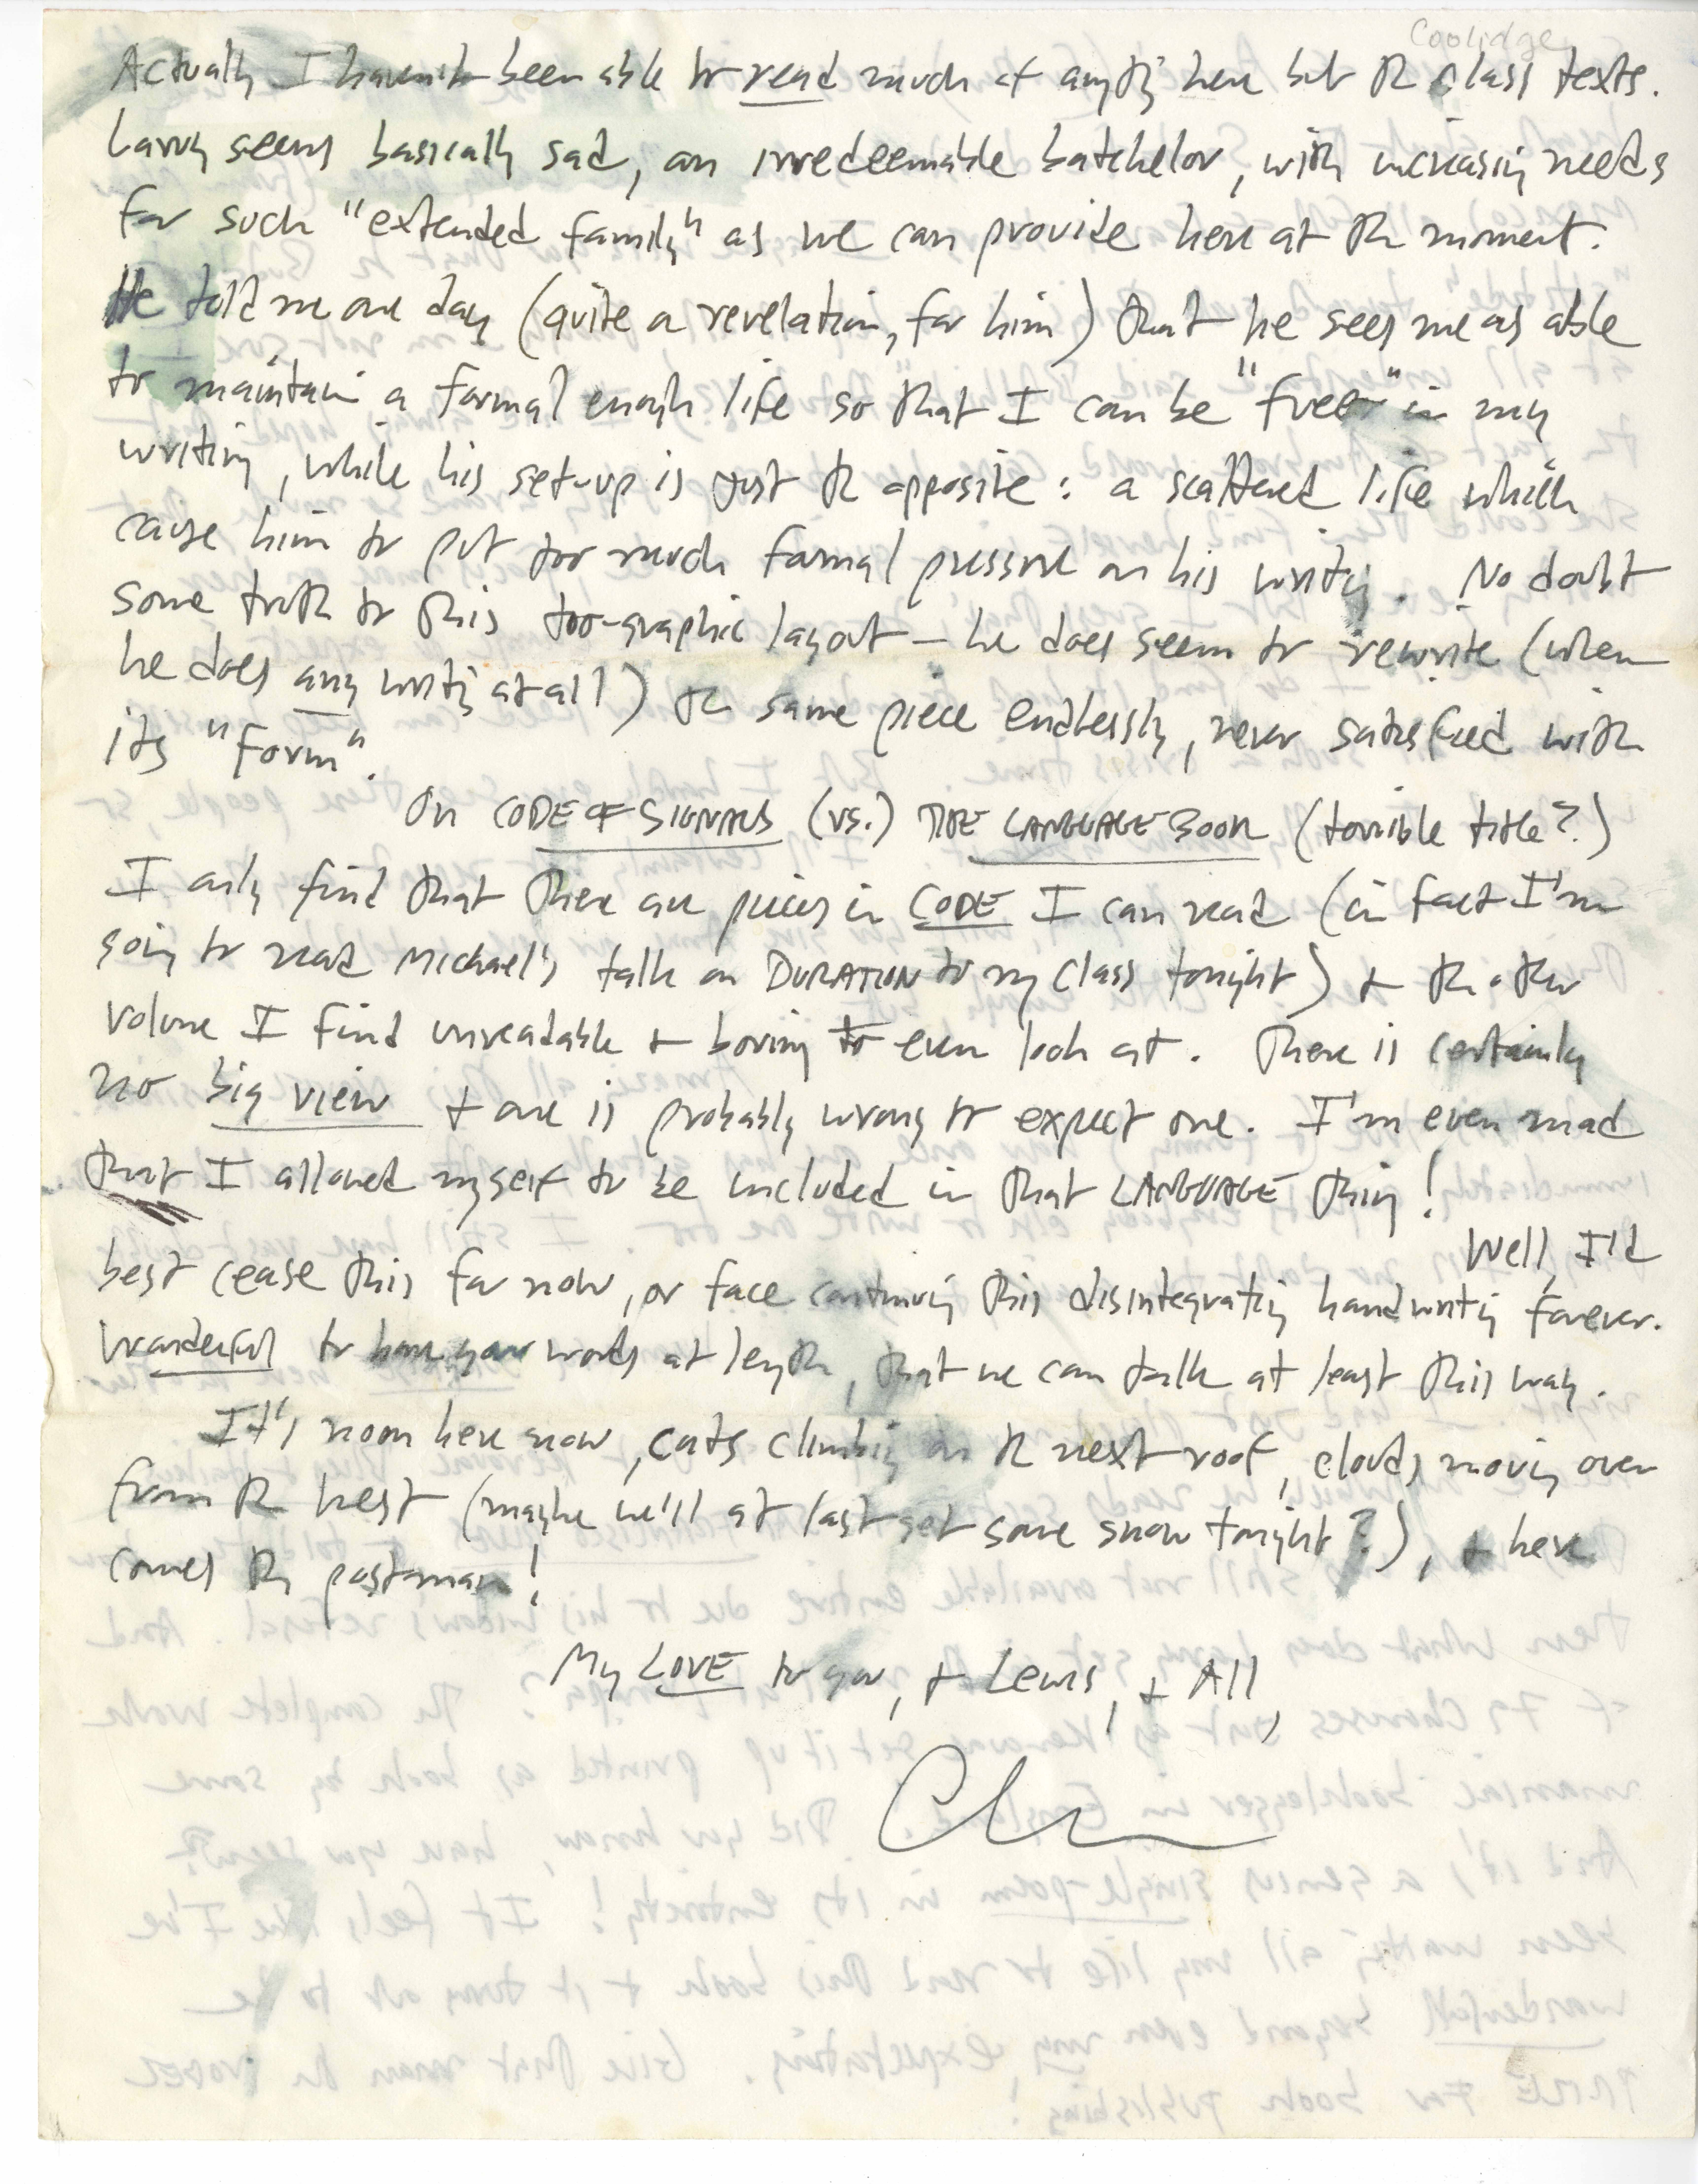 Coolidge
Actually I haven't been able to read much of anything here but the class texts.
Larry seems basically sad, an irredeemable batchelor, with increasing needs
for such "extended family" as we can provide here at the moment.
He told me one day (quite a revelation, for him) that he sees me as able
to maintain a formal enough life so that I can be "freer" in my
writing, while his set-up is just the opposite: a scattered life which
cause him to put too much formal pressure on his writing. No doubt
some truth to this too-graphic layout — he does seem to rewrite (when
he does any writing at all) the same piece endlessly, never satisfied with
its "form".
On CODE OF SIGNALS (vs.) THE LANGUAGE BOOK (terrible title?)
I only find that there are pieces in CODE I can read (in fact I'm
going to read Michael's talk on DURATION to my class tonight) + the other
volume I find unreadable + boring to even look at. There is certainly
no big view + one is probably wrong to expect one. I'm even mad
that I allowed myself to be included in that LANGUAGE thing!
Well, I'd
best cease this for now, or face continuing this disintegrating handwriting forever.
Wonderful to have your words at length, that we can talk at least this way.
It's noon here now, cats climbing on the next roof, clouds moving over
from the west (maybe we'll at last get some snow tonight?), + here
comes the postman!
My LOVE to you, + Lewis, + All,